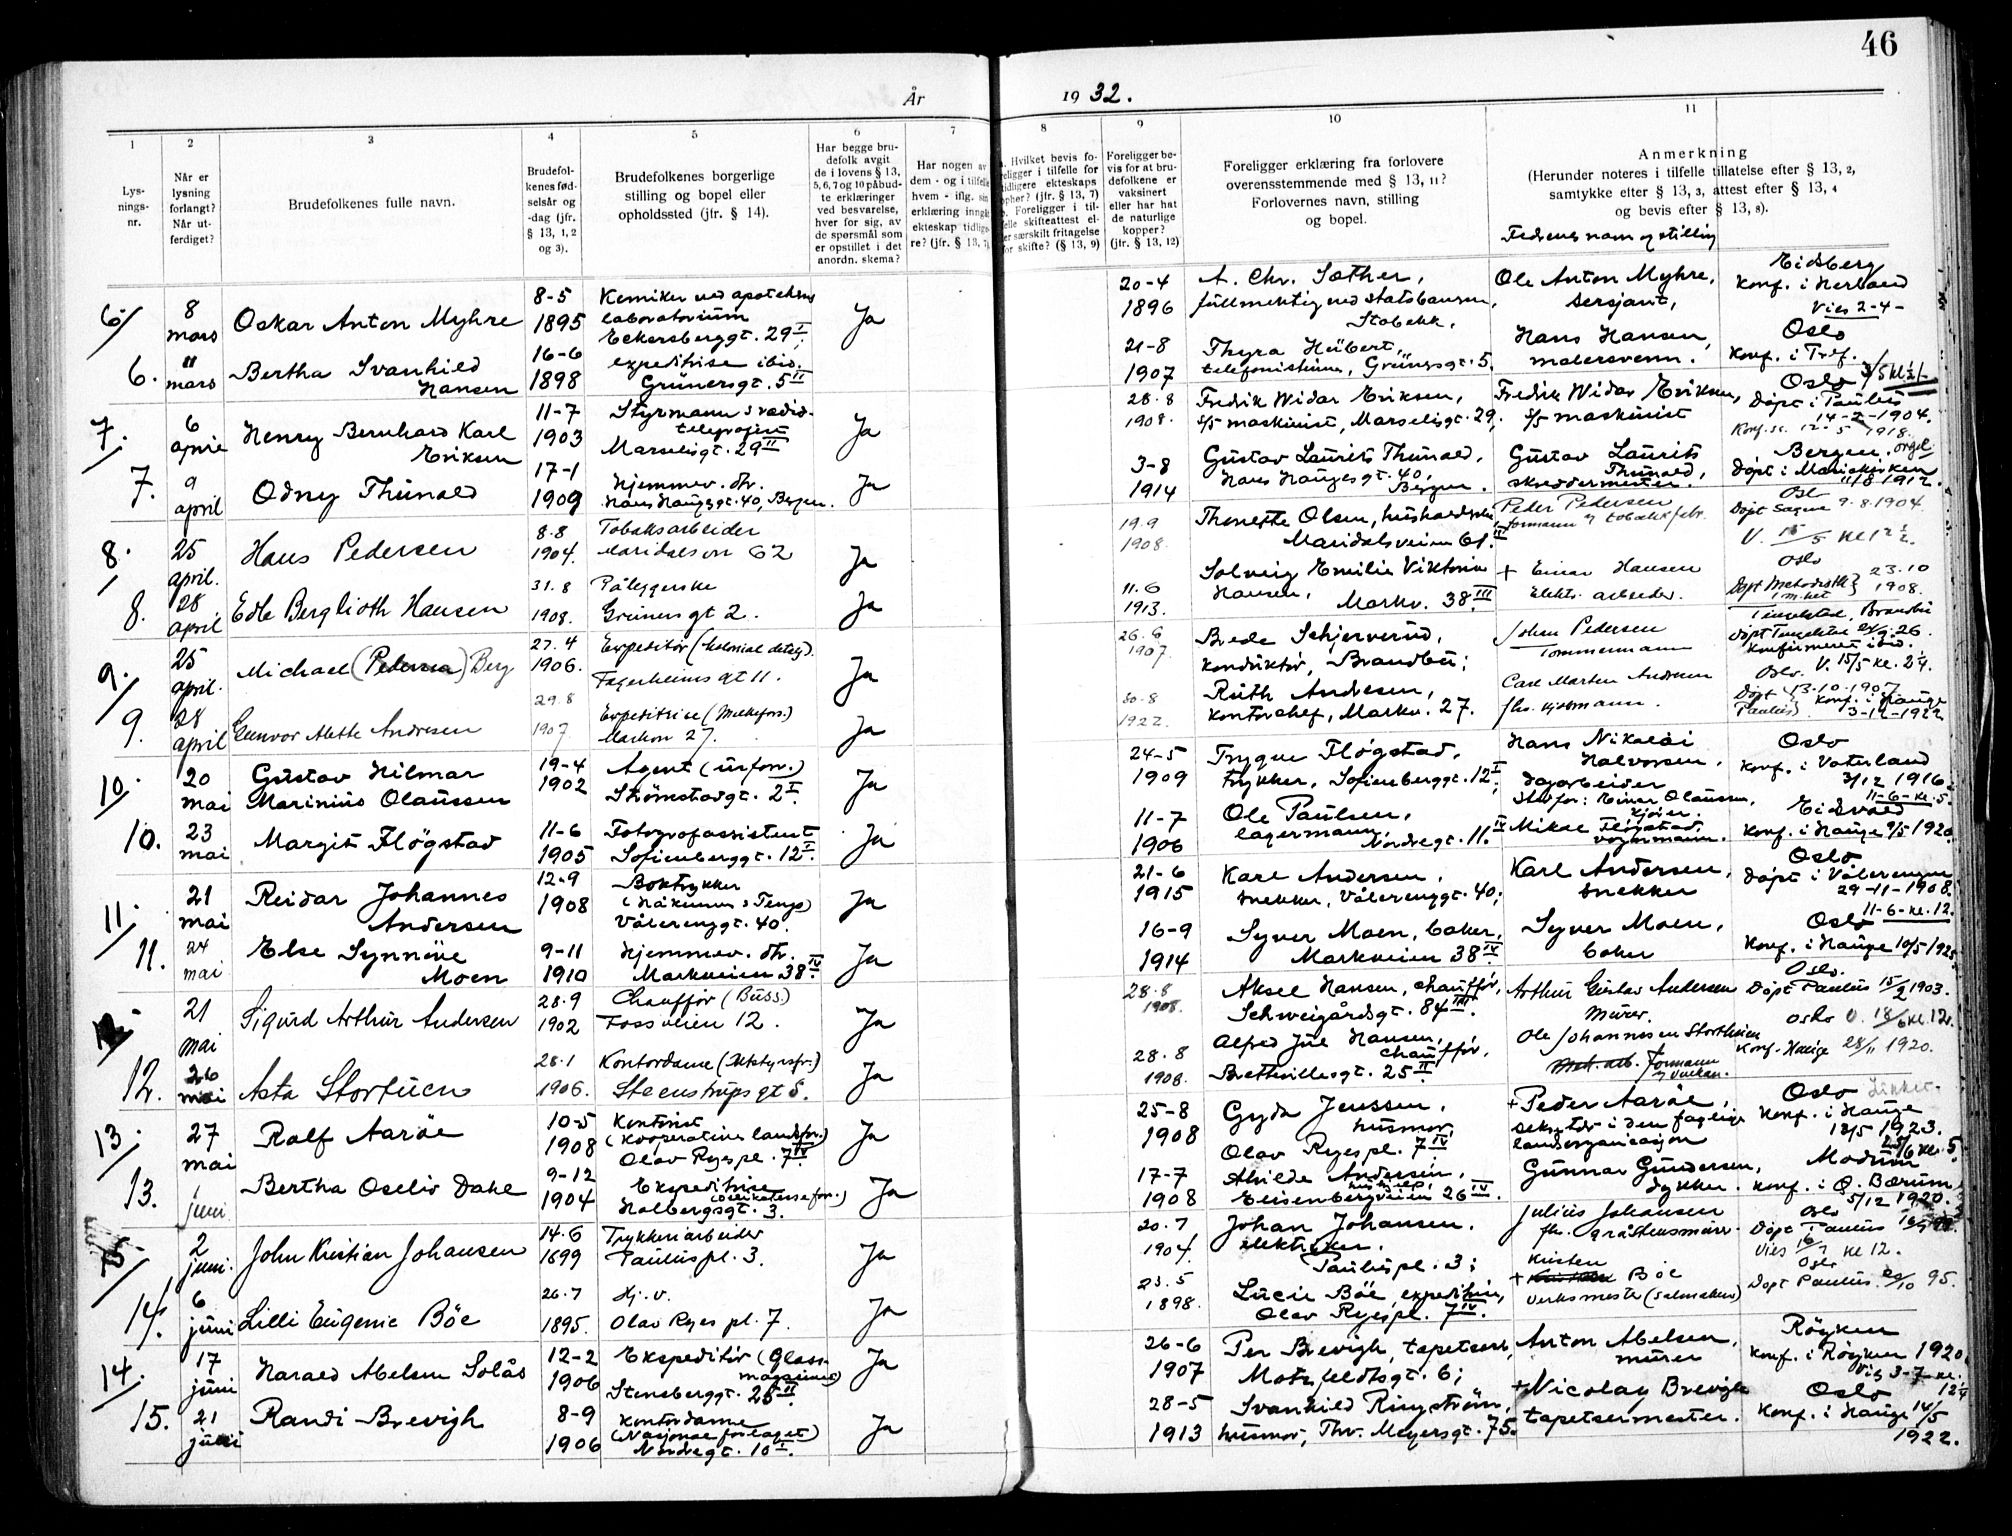 46
År 1932.
1
2
3
4
5
6
7
8
9
10
11
Lys-
nings-
nr.
Når er
lysning
forlangt?
Når ut-
ferdiget?
Brudefolkenes fulle navn.
Brudefol-
kenes fød-
selsår og
-dag (jfr.
§ 13, 1, 2
og 3).
Brudefolkenes borgerlige
stilling og bopel eller
opholdssted (jfr. § 14).
Har begge bru-
defolk avgit
de i lovens § 13,
5, 6, 7 og 10 påbud-
te erklæringer
ved besvarelse,
hver for sig, av
de spørsmål som
er opstillet i det
anordn. skema?
Har nogen av
dem - og i tilfelle
hvem - iflg. sin
erklæring inngått
ekteskap tidlige-
re? (jfr. § 13, 7)
Hvilket bevis fo-
religger i tilfelle for
tidligere ekteskaps
opher? (jfr. § 13, 7)
b. Foreligger i til-
felle skifteattest el-
ler særskilt fritagelse
for skifte? (§ 13, 9)
Foreligger be-
vis for at bru-
defolkene er
vaksinert
eller har hat
de naturlige
kopper?
(jfr. § 13, 12)
Foreligger erklæring fra forlovere
overensstemmende med § 13, 11?
Forlovernes navn, stilling
og bopel.
Anmerkning
(Herunder noteres i tilfelle tillatelse efter § 13, 2,
samtykke efter § 13, 3, attest efter § 13, 4
og bevis efter § 13, 8).
Fedrenes navn og stilling
6/ 8 mars Oskar Anton Myhre 8-5 1895 Kemiker ved apotekernes laboratorium Eckersberggt. 29 I, Ja 20-4 1896 A. Chr. Sæther, fullmektig ved statsbanen, Stabekk, Ole Anton Myhre, sersjant, Eidsberg Konf. i Herland Vies 2-4-
6. 11 mars Bertha Svanhild Hansen 16-6 1898 expeditrise ibid. Grünersgt. 5 II 21-8 1907 Thyra Hübert, telefonistinne, Grünersgt. 5. Hans Hansen, malersvenn. Oslo Konf. i Tref.
7. 6 april Henry Bernhard Karl Eriksen 11-7 1903 Styrmann & radiotelegrafist Marselisgt. 29 II Ja 28-8 1908. Fredrik Widar Eriksen, s/s maskinist, Marselisgt. 29; Fredrik Widar Eriksen, s/s maskinist Oslo Døpt i Paulus 14-2-1904. Konf. 12-5 1918.
7. 9 april Odny Thunold 17-1 1909 Hjemmev. dtr. Hans Haugesgt. 40, Bergen. Ja 3-8 1914 Gustav Laurits Thunold, Hans Haugesgt. 40, Bergen. Gustav Laurits Thunold, skreddermester. Bergen. Døpt i Mariakirken 11/8 1912.
8. 25 april. Hans Pedersen 8.8 1904. Tobaksarbeider Maridalsvn 62 Ja 19.9 1908. Olsen, Maridalsveien 61. Peder Pedersen formann v. tobakkfabr. Oslo Døpt Sagene 9.8.1904. V. 15/5 kl 12 1/2.
8. 28 april Edle Berglioth Hansen 31.8 1908. Påleggerske Grünersgt 2. Ja 11.6 1913. Solveig Emilie Viktoria Hansen, Markv. 38 III. + Einar Hansen Elektr. arbeider. Oslo Døpt Metodistk. 23.10 1908.
9. 25 april. Michael (Pedersen) Berg 27.4 1906. Expeditør (kolonial detalj). Fagerheimsgt 11. Ja 26.6 1907. Brede Schjerverud, konduktør, Brandbu; Johan Pedersen Tømmermann Tingelstad, Brandbu konfirmeret ibid. V. 15/5 kl. 2 1/4.
9. 28 april Gunvor Alette Andresen 29.8 1907 Expeditrise (Melkefors.) Markvn 27. Ja 30.8 1922. Ruth Andresen, kontorchef, Markv. 27. Carl Marten Andresen fhv. kjøbmann. Oslo. Døpt 13.10.1907 Paulus Konf. i Hauge 3-12-1922
10. 20 mai Gustav Hilmar Marinius Olaussen 19-4 1902 Agent (urforr.) Strömstadgt. 2 I. Ja 24-5 1909 Trygve Flögstad, trykker, Sofienberggt. 12 I; Hans Nikolai Halvorsen, dagarbeider Stevfor: Einar Olaussen, kjører. Oslo Konf. i Vaterland 3/12 1916. 11-6-kl. 5.
10. 23 mai Margit Flögstad 11-6 1905 Fotografassistent Sofienberggt. 12 I. Ja 11-7 1906 Ole Paulsen, lagermann, Nordregt. 11. IV Mikal Flögstad, vognmann. Eidsvold Konf. i Hauge 9/5 1920.
11. 21 mai Reidar Johannes Andersen 12-9 1908 Boktrykker Vålerenggt. 40. Ja 21-6 1915 Karl Andersen, snekker, Vålerenggt. 40; Karl Andersen, snekker Oslo. Døpt i Vålerengen 29-11-1908. 11-6-kl. 12.
11. 24 mai Else Synnöve Moen 9-11 1910 Hjemmev. dtr. Markveien 38 IV. Ja 16-9 1914 Syver Moen, baker, Markveien 38 IV. Syver Moen, baker Oslo Konf. i Hauge 10/5 1925.
12. 21 mai Sigurd Arthur Andersen 28.9 1902 Chauffør (Buss.) Fossveien 12. Ja 28.8 1908. Aksel Hansen, chauffør, Schweigårdsgt. 84 III. Arthur Gustav Andersen Murer. Oslo. Døpt Paulus 15/2 1903. Oslo V. 18/6 kl. 12.
12. 26 mai Asta Stortuen 28.1 1906. Kontordame Steenstrupsgt 5. Ja 28.8 1908. Alfred Juel Hansen, chauffør, Brettevillesgt. 25 II. Ole Johannessen Stortuen Formann v. Vulkan. Konf. Hauge 28/11 1920.
13. 27 mai Rolf Aaröe 10-5 1908 Kontorist (Kooperative landsfor.) Olav Ryespl. 7 IV. Ja 25-8 1908 Gyda Jenssen, husmor, Olav Ryespl. 7 IV + Peder Aaröe, sekretær i den faglige landsorganisasjon Oslo Konf. i Hauge 13/5 1923. 25/6 kl. 5.
13. 1 juni Bertha Oselio Dahl 9-12 1904 Ekspeditrise (delikatesseforr.) Holbergsgt. 3. Ja 17-7 1908 Alvilde Andersen, Eisenbergveien 26 IV. Gunnar Gundersen, dykker. Modum Konf. i Ø. Bærum 5/12 1920.
2 juni. John Kristian Johansen 14.6 1899 Trykkeriarbeider Pauluspl. 3. Ja 20.7 1904. Johan Johansen. elektriker. Pauluspl. 3; Julius Johansen fhv. gråstensmurer Oslo Døpt Paulus Vies 16/7 kl 12.
14. 6 juni Lilli Eugenie Böe 26.7 1895. Hj. v. Olav Ryes pl. 7. Ja 23.5 1898. Lucie Böe, expeditrise, Olav Ryespl. 7 IV. + Kristen Böe Verksmester (Salmakeri) Oslo Døpt Paulus 20/10 95.
14. 17 juni Harald Abelsen Solås 12-2 1906 Ekspeditör (Glassmagasinet) Stensberggt. 26 II. Ja 26-6 1907 Per Brevigh, tapetserer, Motzfeldtsgt. 6; Anton Abelsen, murer Röyken Konf. i Röyken 1920. Vig 3-7-kl. 12 1/4
15. 21 juni Randi Brevigh 8-9 1906 Kontordame (Nasjonalforlaget) Nordregt. 10 I. Ja 28-5 1913 Svanhild Ringström, husmor, Thv. Meyersgt. 75. + Nicolay Brevigh tapetsermester. Oslo Konf. i Hauge 14/5 1922.